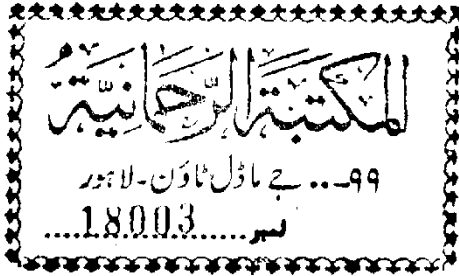 المكتبة الرحمانية
۹۹... جے ماڈل ٹاؤن۔ لاہور
نمبر......18003....